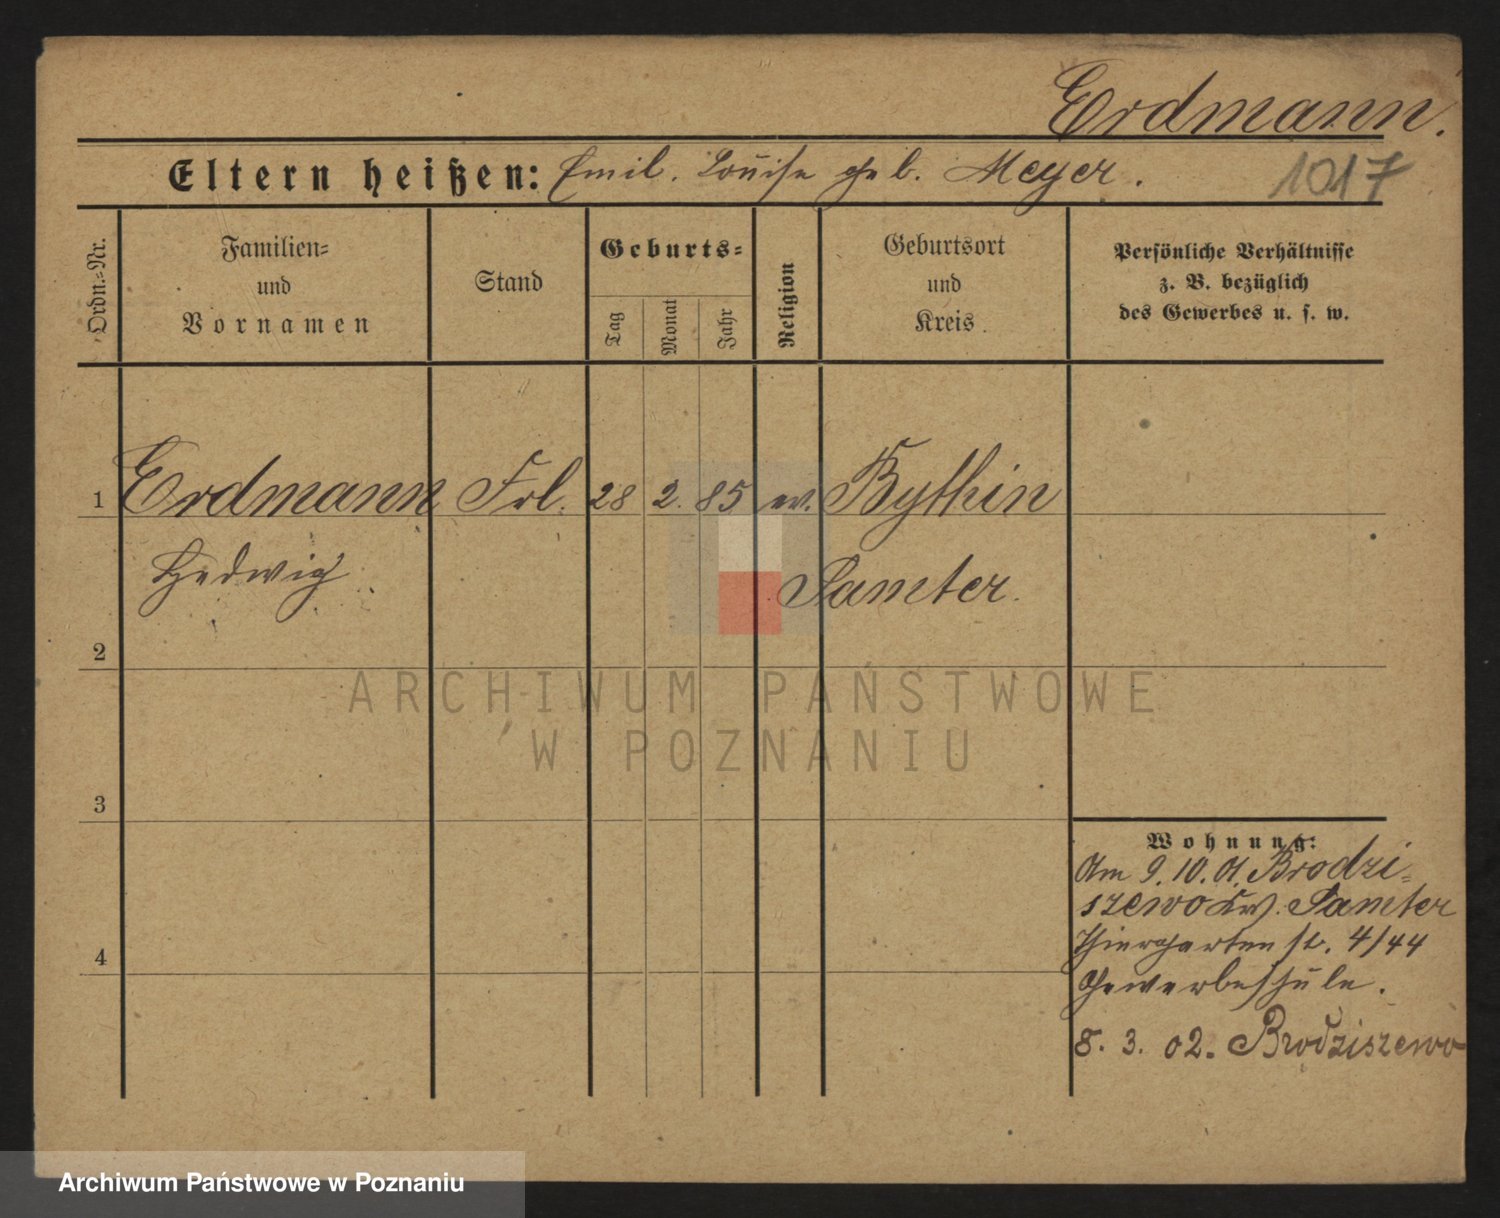 Erdmann.
Eltern heißen: Emil. Louise geb. Meyer.
1017
Ordn.=Nr.
Familien=
und
Vornamen
Stand
Geburts=
Tag
Monat
Jahr
Religion
Geburtsort
und
Kreis
Persönliche Verhältnisse
z. B. bezüglich
des Gewerbes u. s. w.
1 Erdmann Frl. 28 2. 85 ev. Bythin
Hedwig Samter.
2
3
4
Wohnung:
Am 9.10.01. Brodzi=
szewo Krs. Samter
Thiergartenstr. 4/44
Gewerbeschule.
8. 3. 02. Brodziszewo
ARCHIWUM PAŃSTWOWE
W POZNANIU
Archiwum Państwowe w Poznaniu